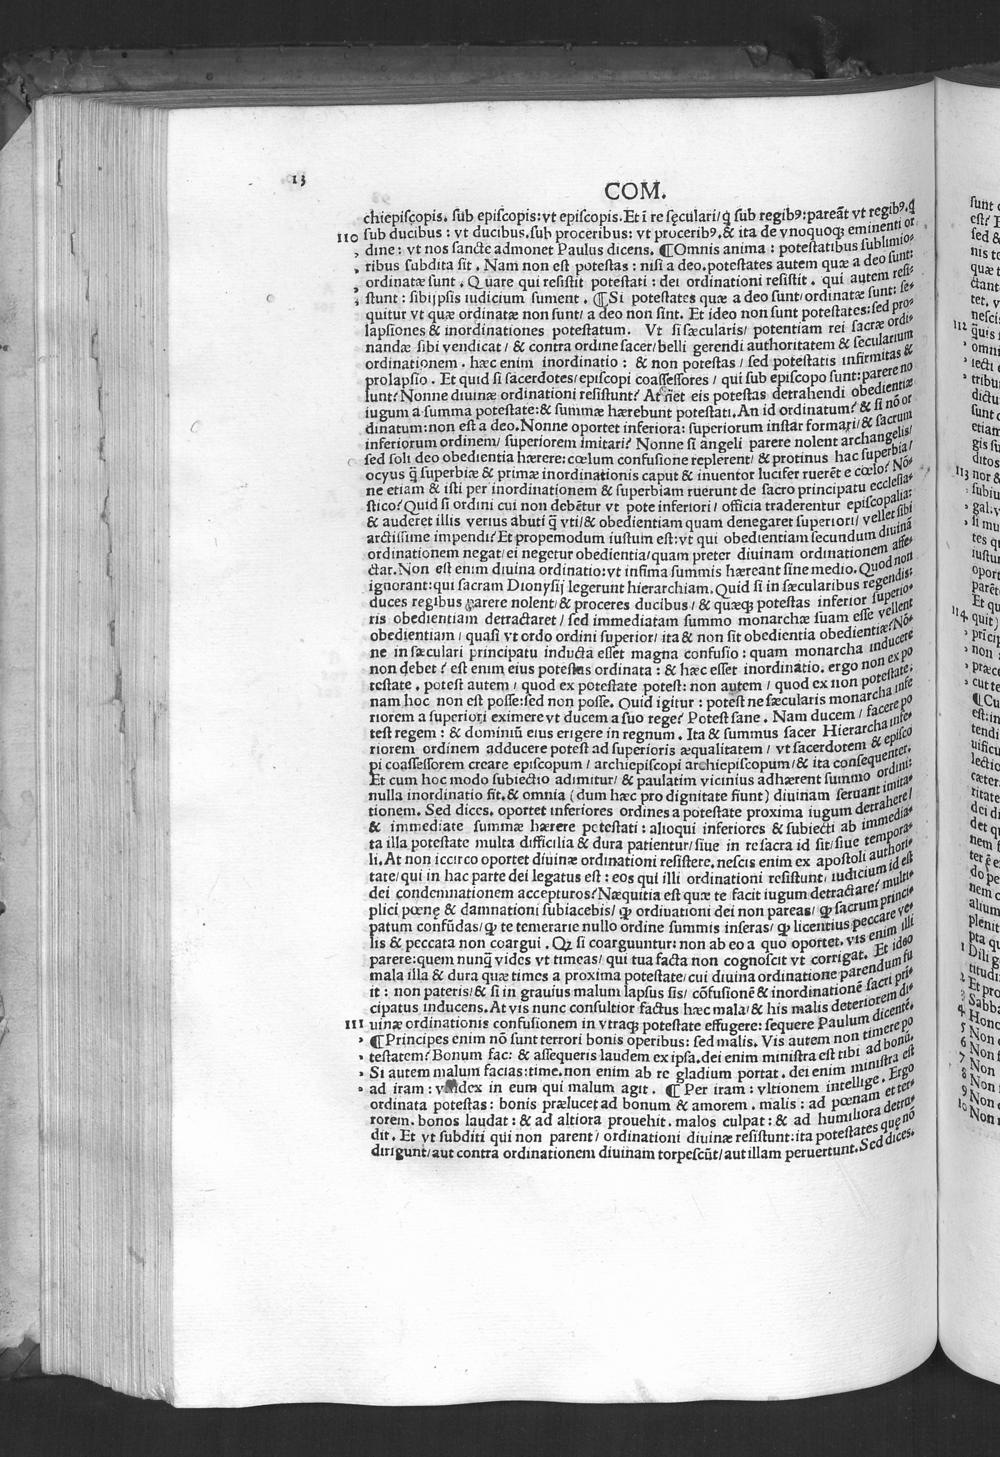 13
COM.
chiepiſcopis. ſub epiſcopis: vt epiſcopis. Et ī re ſęculari/ ꝗ ſub regibꝰ: pareāt vt regibꝰ. ꝗ
110 ſub ducibus: vt ducibus. ſub proceribus: vt proceribꝰ. & ita de vnoquoqꝫ eminenti or
dine: vt nos ſancte admonet Paulus dicens. ¶Omnis anima: poteſtatibus ſublimio⸗
ribus ſubdita ſit. Nam non eſt poteſtas: niſi a deo. poteſtates autem quæ a deo ſunt:
ordinatæ ſunt. Quare qui reſiſtit poteſtati: dei ordinationi reſiſtit. qui autem reſi⸗
ſtunt: ſibijpſis iudicium ſument. ¶Si poteſtates quæ a deo ſunt/ ordinatæ ſunt: ſe⸗
quitur vt quæ ordinatæ non ſunt/ a deo non ſint. Et ideo non ſunt poteſtates: ſed pro⸗
lapſiones & inordinationes poteſtatum. Vt ſi ſæcularis/ potentiam rei ſacræ ordi⸗
nandæ ſibi vendicat/ & contra ordine ſacer/ belli gerendi authoritatem & ſecularium
ordinationem. hæc enim inordinatio: & non poteſtas/ ſed poteſtatis infirmitas &
prolapſio. Et quid ſi ſacerdotes/ epiſcopi coaſſeſſores/ qui ſub epiſcopo ſunt: parere no
lunt? Nonne diuinæ ordinationi reſiſtunt? At eis poteſtas detrahendi obedientiæ
iugum a ſumma poteſtate: & ſummæ hærebunt poteſtati. An id ordinatum? & ſi nō or
dinatum: non eſt a deo. Nonne oportet inferiora: ſuperiorum inſtar formari/ & ſacrum
inferiorum ordinem/ ſuperiorem imitari? Nonne ſi angeli parere nolent archangelis/
ſed ſoli deo obedientia hærere: cœlum confuſione replerent/ & protinus hac ſuperbia/
ocyus q̄ ſuperbiæ & primæ inordinationis caput & inuentor lucifer ruerēt e cœlo? Nō⸗
ne etiam & iſti per inordinationem & ſuperbiam ruerunt de ſacro principatu eccleſia⸗
ſtico? Quid ſi ordini cui non debētur vt pote inferiori/ officia traderentur epiſcopalia:
& auderet illis verius abuti q̄ vti/ & obedientiam quam denegaret ſuperiori/ vellet ſibi
arctiſſime impendi? Et propemodum iuſtum eſt: vt qui obedientiam ſecundum diuinā
ordinationem negat/ ei negetur obedientia/ quam preter diuinam ordinationem affe⸗
ctat. Non eſt enim diuina ordinatio: vt infima ſummis hæreant ſine medio. Quod non
ignorant: qui ſacram Dionyſij legerunt hierarchiam. Quid ſi in ſæcularibus regendis:
duces regibus parere nolent/ & proceres ducibus/ & quæqꝫ poteſtas inferior ſuperio⸗
ris obedientiam detractaret/ ſed immediatam ſummo monarchæ ſuam eſſe vellent
obedientiam/ quaſi vt ordo ordini ſuperior/ ita & non ſit obedientia obedientiæ? Nō⸗
ne in ſæculari principatu inducta eſſet magna confuſio: quam monarcha inducere
non debet? eſt enim eius poteſtas ordinata: & hæc eſſet inordinatio. ergo non ex po
teſtate. poteſt autem/ quod ex poteſtate poteſt: non autem/ quod ex non poteſtate:
nam hoc non eſt poſſe: ſed non poſſe. Quid igitur: poteſt ne ſæcularis monarcha infe
riorem a ſuperiori eximere vt ducem a ſuo rege? Poteſt ſane. Nam ducem/ facere po
teſt regem: & dominiū eius erigere in regnum. Ita & ſummus ſacer Hierarcha infe⸗
riorem ordinem adducere poteſt ad ſuperioris æqualitatem/ vt ſacerdotem & epiſco
pi coaſſeſſorem creare epiſcopum/ archiepiſcopi archiepiſcopum/ & ita conſequenter.
Et cum hoc modo ſubiectio adimitur/ & paulatim vicinius adhærent ſummo ordini:
nulla inordinatio fit. & omnia (dum hæc pro dignitate fiunt) diuinam ſeruant imita⸗
tionem. Sed dices. oportet inferiores ordines a poteſtate proxima iugum detrahere/
& immediate ſummæ hærere poteſtati: alioqui inferiores & ſubiecti ab immedia⸗
ta illa poteſtate multa difficilia & dura patientur/ ſiue in re ſacra id ſit/ ſiue tempora⸗
li. At non iccirco oportet diuinæ ordinationi reſiſtere. neſcis enim ex apoſtoli authori⸗
tate/ qui in hac parte dei legatus eſt: eos qui illi ordinationi reſiſtunt/ iudicium id eſt
dei condemnationem accepturos? Næquitia eſt quæ te facit iugum detractare? multi⸗
plici pœnę & damnationi ſubiacebis/ ꝙ ordinationi dei non pareas/ ꝙ ſacrum princi⸗
patum confūdas/ ꝙ te temerarie nullo ordine ſummis inſeras/ ꝙ licentius peccare ve⸗
lis & peccata non coargui. Qꝫ ſi coarguuntur: non ab eo a quo oportet. vis enim illi
parere: quem nunq̄ vides vt timeas/ qui tua facta non cognoſcit vt corrigat. Et ideo
mala illa & dura quæ times a proxima poteſtate/ cui diuina ordinatione parendum fu
it: non pateris/ & ſi in grauius malum lapſus ſis/ cōfuſionē & inordinationē ſacri pri⸗
cipatus inducens. At vis nunc conſultior factus hæc mala/ & his malis deteriorem di⸗
111 uinæ ordinationis confuſionem in vtraqꝫ poteſtate effugere: ſequere Paulum dicentē.
¶Principes enim nō ſunt terrori bonis operibus: ſed malis. Vis autem non timere po
teſtatem? Bonum fac: & aſſequeris laudem ex ipſa. dei enim miniſtra eſt tibi ad bonū.
Si autem malum facias: time. non enim ab re gladium portat. dei enim miniſtra eſt
ad iram: vindex in eum qui malum agit. ¶Per iram: vltionem intellige. Ergo
ordinata poteſtas: bonis prælucet ad bonum & amorem. malis: ad pœnam et ter⸗
rorem. bonos laudat: & ad altiora prouehit. malos culpat: & ad humiliora detru⸗
dit. Et vt ſubditi qui non parent/ ordinationi diuinæ reſiſtunt: ita poteſtates quę nō
dirigunt/ aut contra ordinationem diuinam torpeſcūt/ aut illam peruertunt. Sed dices.